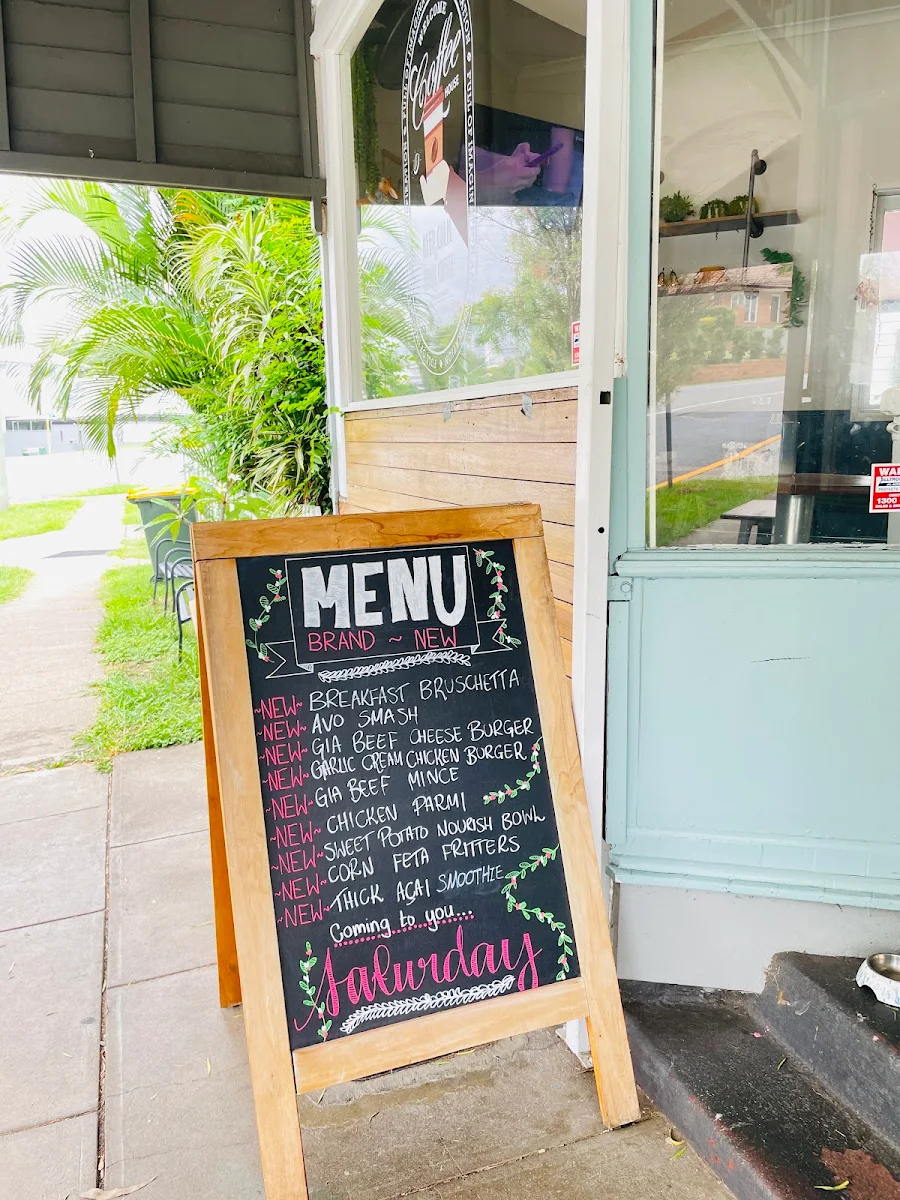 WELCOME
Coffee
HOUSE
MENU
BRAND ~ NEW
~NEW~ BREAKFAST BRUSCHETTA
~NEW~ AVO SMASH
~NEW~ GIA BEEF CHEESE BURGER
~NEW~ GARLIC CREAM CHICKEN BURGER
~NEW~ GIA BEEF MINCE
~NEW~ CHICKEN PARMI
~NEW~ SWEET POTATO NOURISH BOWL
~NEW~ CORN FETA FRITTERS
~NEW~ THICK AÇAI SMOOTHIE
Coming to you...
Saturday